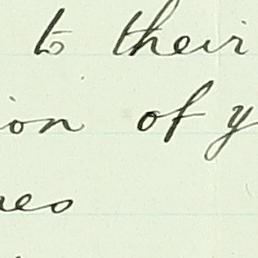 to their
ion of y
es